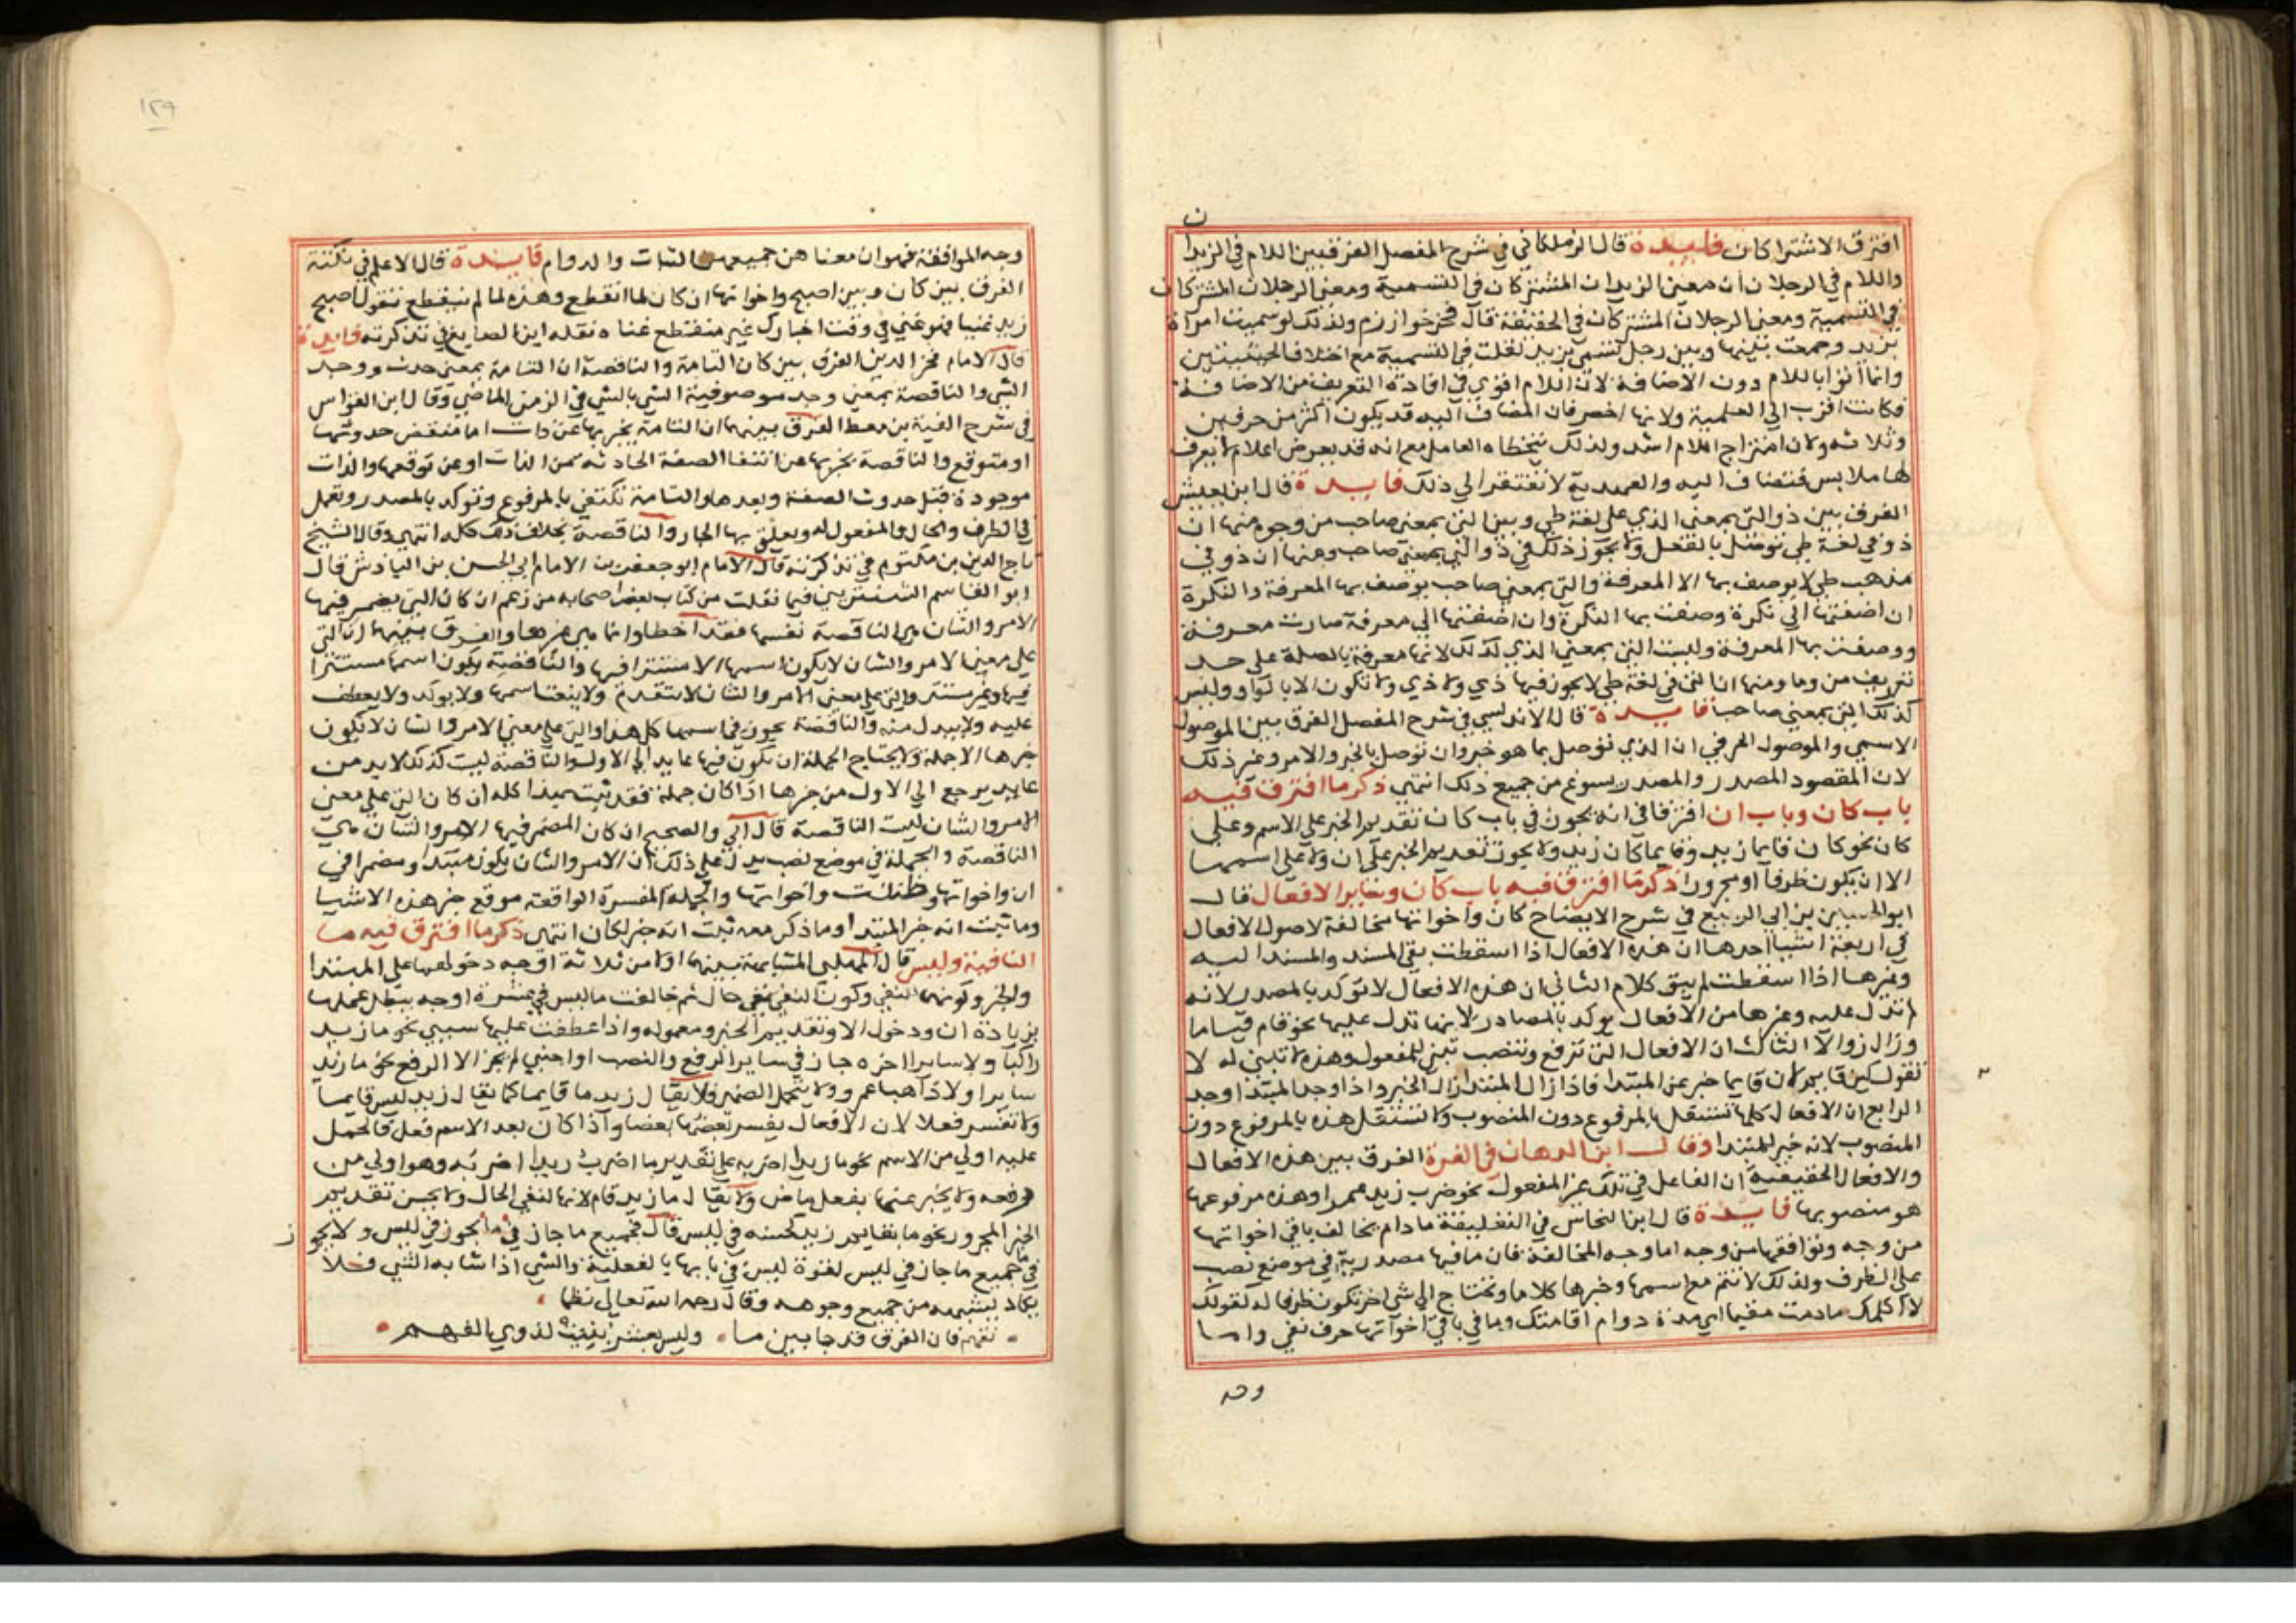 ن
افترق الاشتراكان فايدة قال الزملكاني في شرح المفصل الفرق بين اللام في الزيدان
واللام في الرجلان ان معنى الزيدان المشتركان في التسمية ومعنى الرجلان المشتركان
في التسمية ومعنى الرجلان المشتركان في الحقيقة قال فخر خوارزم ولذلك لو سميت امراة
بزيد وجمعت بينها وبين رجل تسمى بزيد لقلت في التسمية مع اختلاف الحقيقتين
وانما اتوا باللام دون الاضافة لان اللام اقوى في افادة التعريف من الاضافة
فكانت اقرب الى العلمية ولانها اخصر فان المضاف اليه قد يكون اكثر من حرفين
وثلاثه ولان امتزاج اللام اشد ولذلك يتخطاه العامل مع انه قد يعرض اعلام لا يعرف
لها ملابس فتضاف اليه والعهدية لا تفتقر الى ذلك فايدة قال ابن يعيش
الفرق بين ذو التي بمعنى الذي على لغة طي وبين التي بمعنى صاحب من وجوه منها ان
ذو في لغة طي توصل بالفعل ولا يجوز ذلك في ذو التي بمعنى صاحب ومنها ان ذو في
مذهب طي لا يوصف بها الا المعرفة والتي بمعنى صاحب يوصف بها المعرفة والنكرة
ان اضفتها الى نكرة وصفت بها النكرة وان اضفتها الى معرفة صارت معرفة
ووصفت بها المعرفة وليست التي بمعنى الذي كذلك لانها معرفة بالصلة على حد
تعريف من وما ومنها ان التي في لغة طي لا يجوز فيها ذي ولا ذي ولا تكون الا بالواو وليس
كذلك التي بمعنى صاحب فايدة قال الاندلسي في شرح المفصل الفرق بين الموصول
الاسمي والموصول الحرفي ان الذي توصل بما هو خبر وان توصل بالخبر والامر وغير ذلك
لان المقصود المصدر والمصدر يسوغ من جميع ذلك انتهى ذكر ما افترق فيه
باب كان وباب ان افترقا في انه يجوز في باب كان تقديم الخبر على الاسم وعلى
كان نحو كان قايما زيد وقايما كان زيد ولا يجوز تقديم الخبر على ان ولا على اسمها
الا ان يكون ظرفا او مجرورا ذكر ما افترق فيه باب كان وساير الافعال قال
ابو الحسين بن ابي الربيع في شرح الايضاح كان واخواتها مخالفة لاصول الافعال
في اربعة اشيا احدها ان هذه الافعال اذا اسقطت بقي المسند والمسند اليه
وغيرها اذا اسقطت لم يبق كلام الثاني ان هذه الافعال لا توكد بالمصدر لانه
لم تدل عليه وغيرها من الافعال يوكد بالمصادر لانها تدل عليها نحو قام قياما
وزال زوالا الثالث ان الافعال التي ترفع وتنصب تبنى للمفعول وهذه لا تبنى له لا
تقول كين قايم لان قايما خبر عن المبتدا فاذا زال المبتدا زال الخبر واذا وجد المبتدا وجد
الرابع ان الافعال كلها تستقل بالمرفوع دون المنصوب ولا تستقل هذه بالمرفوع دون
المنصوب لانه خبر للمبتدا وقال ابن الدهان في الغرة الفرق بين هذه الافعال
والافعال الحقيقية ان الفاعل في تلك غير المفعول نحو ضرب زيد عمرا وهذه مرفوعها
هو منصوبها فايدة قال ابن النحاس في التعليقة ما دام يخالف باقي اخواتها
من وجه وتوافقها من وجه اما وجه المخالفة فان ما فيها مصدرية في موضع نصب
على الظرف ولذلك لا تتم مع اسمها وخبرها كلاما وتحتاج الى شي اخر تكون ظرفا له كقولك
لا اكلمك ما دمت مقيما اي مدة دوام اقامتك وما في باقي اخواتها حرف نفي واما
وجه
١٢٩
وجه الموافقة فهو ان معناهن جميعهن الثبات والدوام فايدة قال الاعلم في نكتة
الفرق بين كان وبين اصبح واخواتها ان كان لما انقطع وهذه لما لم ينقطع تقول اصبح
زيد غنيا فهو غني في وقت اخبارك غير منقطع غناه نقله ابن الصايغ في تذكرته فايدة
قال الامام فخر الدين الفرق بين كان التامة والناقصة ان التامة بمعنى حدث ووجد
الشي والناقصة بمعنى وجد موصوفية الشي بالشي في الزمن الماضي وقال ابن القواس
في شرح الفية بن معط الفرق بينهما ان التامة يخبر بها عن ذات اما منقض حدوثها
او متوقع والناقصة يخبر بها عن انقضا الصفة الحادثه من الذات او عن توقعها والذات
موجودة قبل حدوث الصفة وبعدها والتامة تكتفي بالمرفوع وتوكد بالمصدر وتعمل
في الظرف والحال والمفعول له ويعلق بها الجار والناقصة بخلاف ذلك كله انتهى وقال الشيخ
تاج الدين بن مكتوم في تذكرته قال الامام ابو جعفر بن الامام ابي الحسن بن الباذش قال
ابو القاسم الشنتريني فيما نقلت من كتاب بعض اصحابه من زعم ان كان التي يضمر فيها
الامر والشان هي الناقصة نفسها فقد اخطا وانما هي غيرها والفرق بينهما ان التي
على معنى الامر والشان لا يكون اسمها الا مستترا فيها والناقصة يكون اسمها مستترا
فيها وغير مستتر والتي على معنى الامر والشان لا يتقدم ولا ينعت اسمها ولا يوكد ولا يعطف
عليه ولا يبدل منه والناقصة يجوز في اسمها كل هذا والتي على معنى الامر والشان لا يكون
خبرها الا جملة ولا يحتاج الجملة ان يكون فيها عايد الى الاول والناقصة ليست كذلك لا بد من
عايد يرجع الى الاول من خبرها اذا كان جملة فقد ثبت بهذا كله ان كان التي على معنى
الامر والشان ليست الناقصة قال ابي والصحيح ان كان المضمر فيها الامر والشان هي
الناقصة والجملة في موضع نصب يدل على ذلك ان الامر والشان يكون مبتدا ومضمرا في
ان واخواتها وظننت واخواتها والجملة المفسرة الواقعة موقع خبر هذه الاشيا
وما ثبت انه خبر المبتدا وما ذكر معه ثبت انه خبر لكان انتهى ذكر ما افترق فيه ما
النافية وليس قال المهلبي المشابهة بينهما اولا من ثلاثة اوجه دخولهما على المبتدا
والخبر وكونهما للنفي وكون النفي نفي حال ثم خالفت ما ليس في عشرة اوجه يبطل عملها
بزيادة ان ودخول الا وتقديم الخبر ومعموله واذا عطفت عليها سببي نحو ما زيد
راكبا ولا سايرا اخوه جاز في سايرا الرفع والنصب او اجنبي لم يجز الا الرفع نحو ما زيد
سايرا ولا ذاهبا عمرو ولا يتحمل الضمير فلا يقال زيد ما قايما كما يقال زيد ليس قايما
ولا تفسر فعلا لان الافعال يفسر بعضها بعضا واذا كان بعد الاسم فعل فالحمل
عليه اولى من الاسم نحو ما زيدا اضربه على تقدير ما اضرب زيدا اضربه وهو اولى من
رفعه ولا يخبر عنها بفعل ماض ولا يقال ما زيد قام لانها لنفي الحال ولا يحسن تقديم
الخبر المجرور نحو ما بقايم زيد كحسنه في ليس قال فجميع ما جاز في ما يجوز في ليس ولا يجوز
في جميع ما جاز في ليس لقوة ليس في بابها بالفعلية والشي اذا شابه الشي فلا
يكاد يشبهه من جميع وجوهه وقال رحمه الله تعالى نظما
تفهم فان الفرق قد جا بين ما وليس بعشر بينت لذوي الفهم